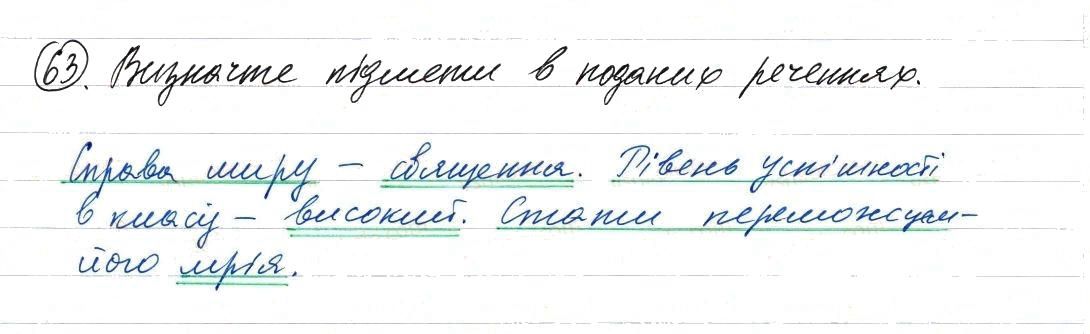 63. Визначте підмети в поданих реченнях.
Справа миру – священна. Рівень успішності
в класі – високий. Стати переможцем –
його мрія.